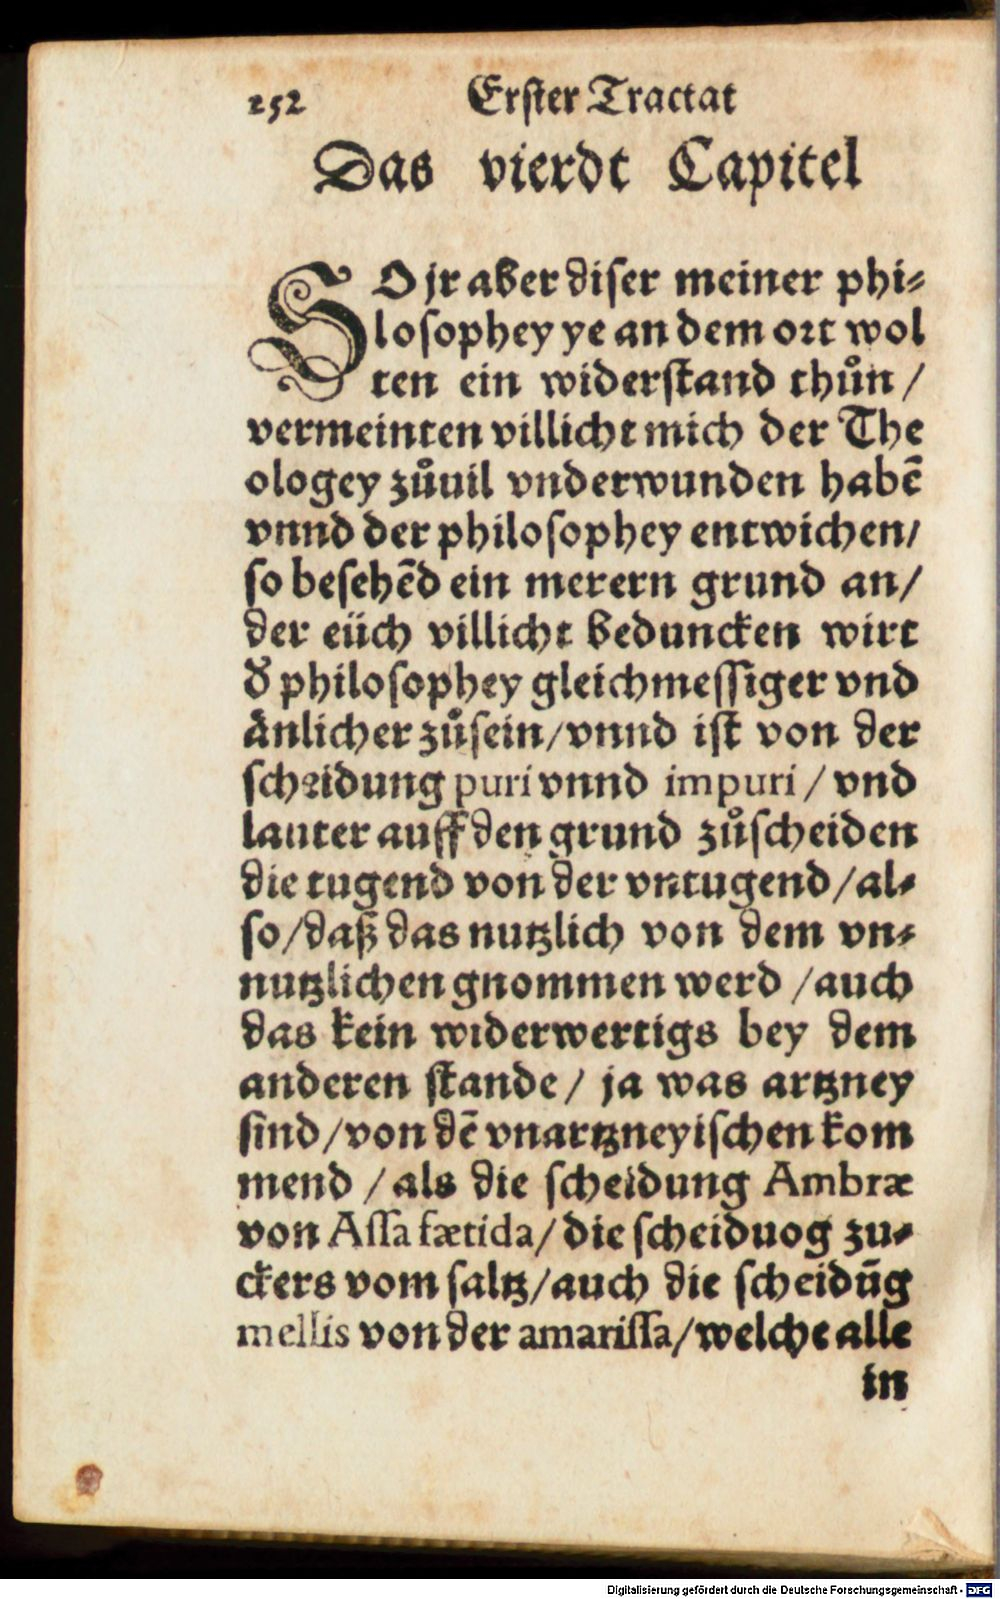 252 Erster Tractat
Das vierdt Capitel
SO jr aber diser meiner phi-
losophey ye an dem ort wol
ten ein widerstand thůn /
vermeinten villicht mich der The
ologey zůuil vnderwunden habē
vnnd der philosophey entwichen/
so besehēd ein merern grund an/
der eüch villicht beduncken wirt
d' philosophey gleichmessiger vnd
änlicher zůsein/vnnd ist von der
scheidung puri vnnd impuri / vnd
lauter auff den grund zůscheiden
die tugend von der vntugend/al-
so/daß das nutzlich von dem vn-
nutzlichen gnommen werd /auch
das kein widerwertigs bey dem
anderen stande/ ja was artzney
sind/von dē vnartzneyischen kom
mend /als die scheidung Ambræ
von Assa fætida/die scheiduog zu-
ckers vom saltz/auch die scheidūg
mellis von der amarissa/welche alle
in
Digitalisierung gefördert durch die Deutsche Forschungsgemeinschaft - DFG